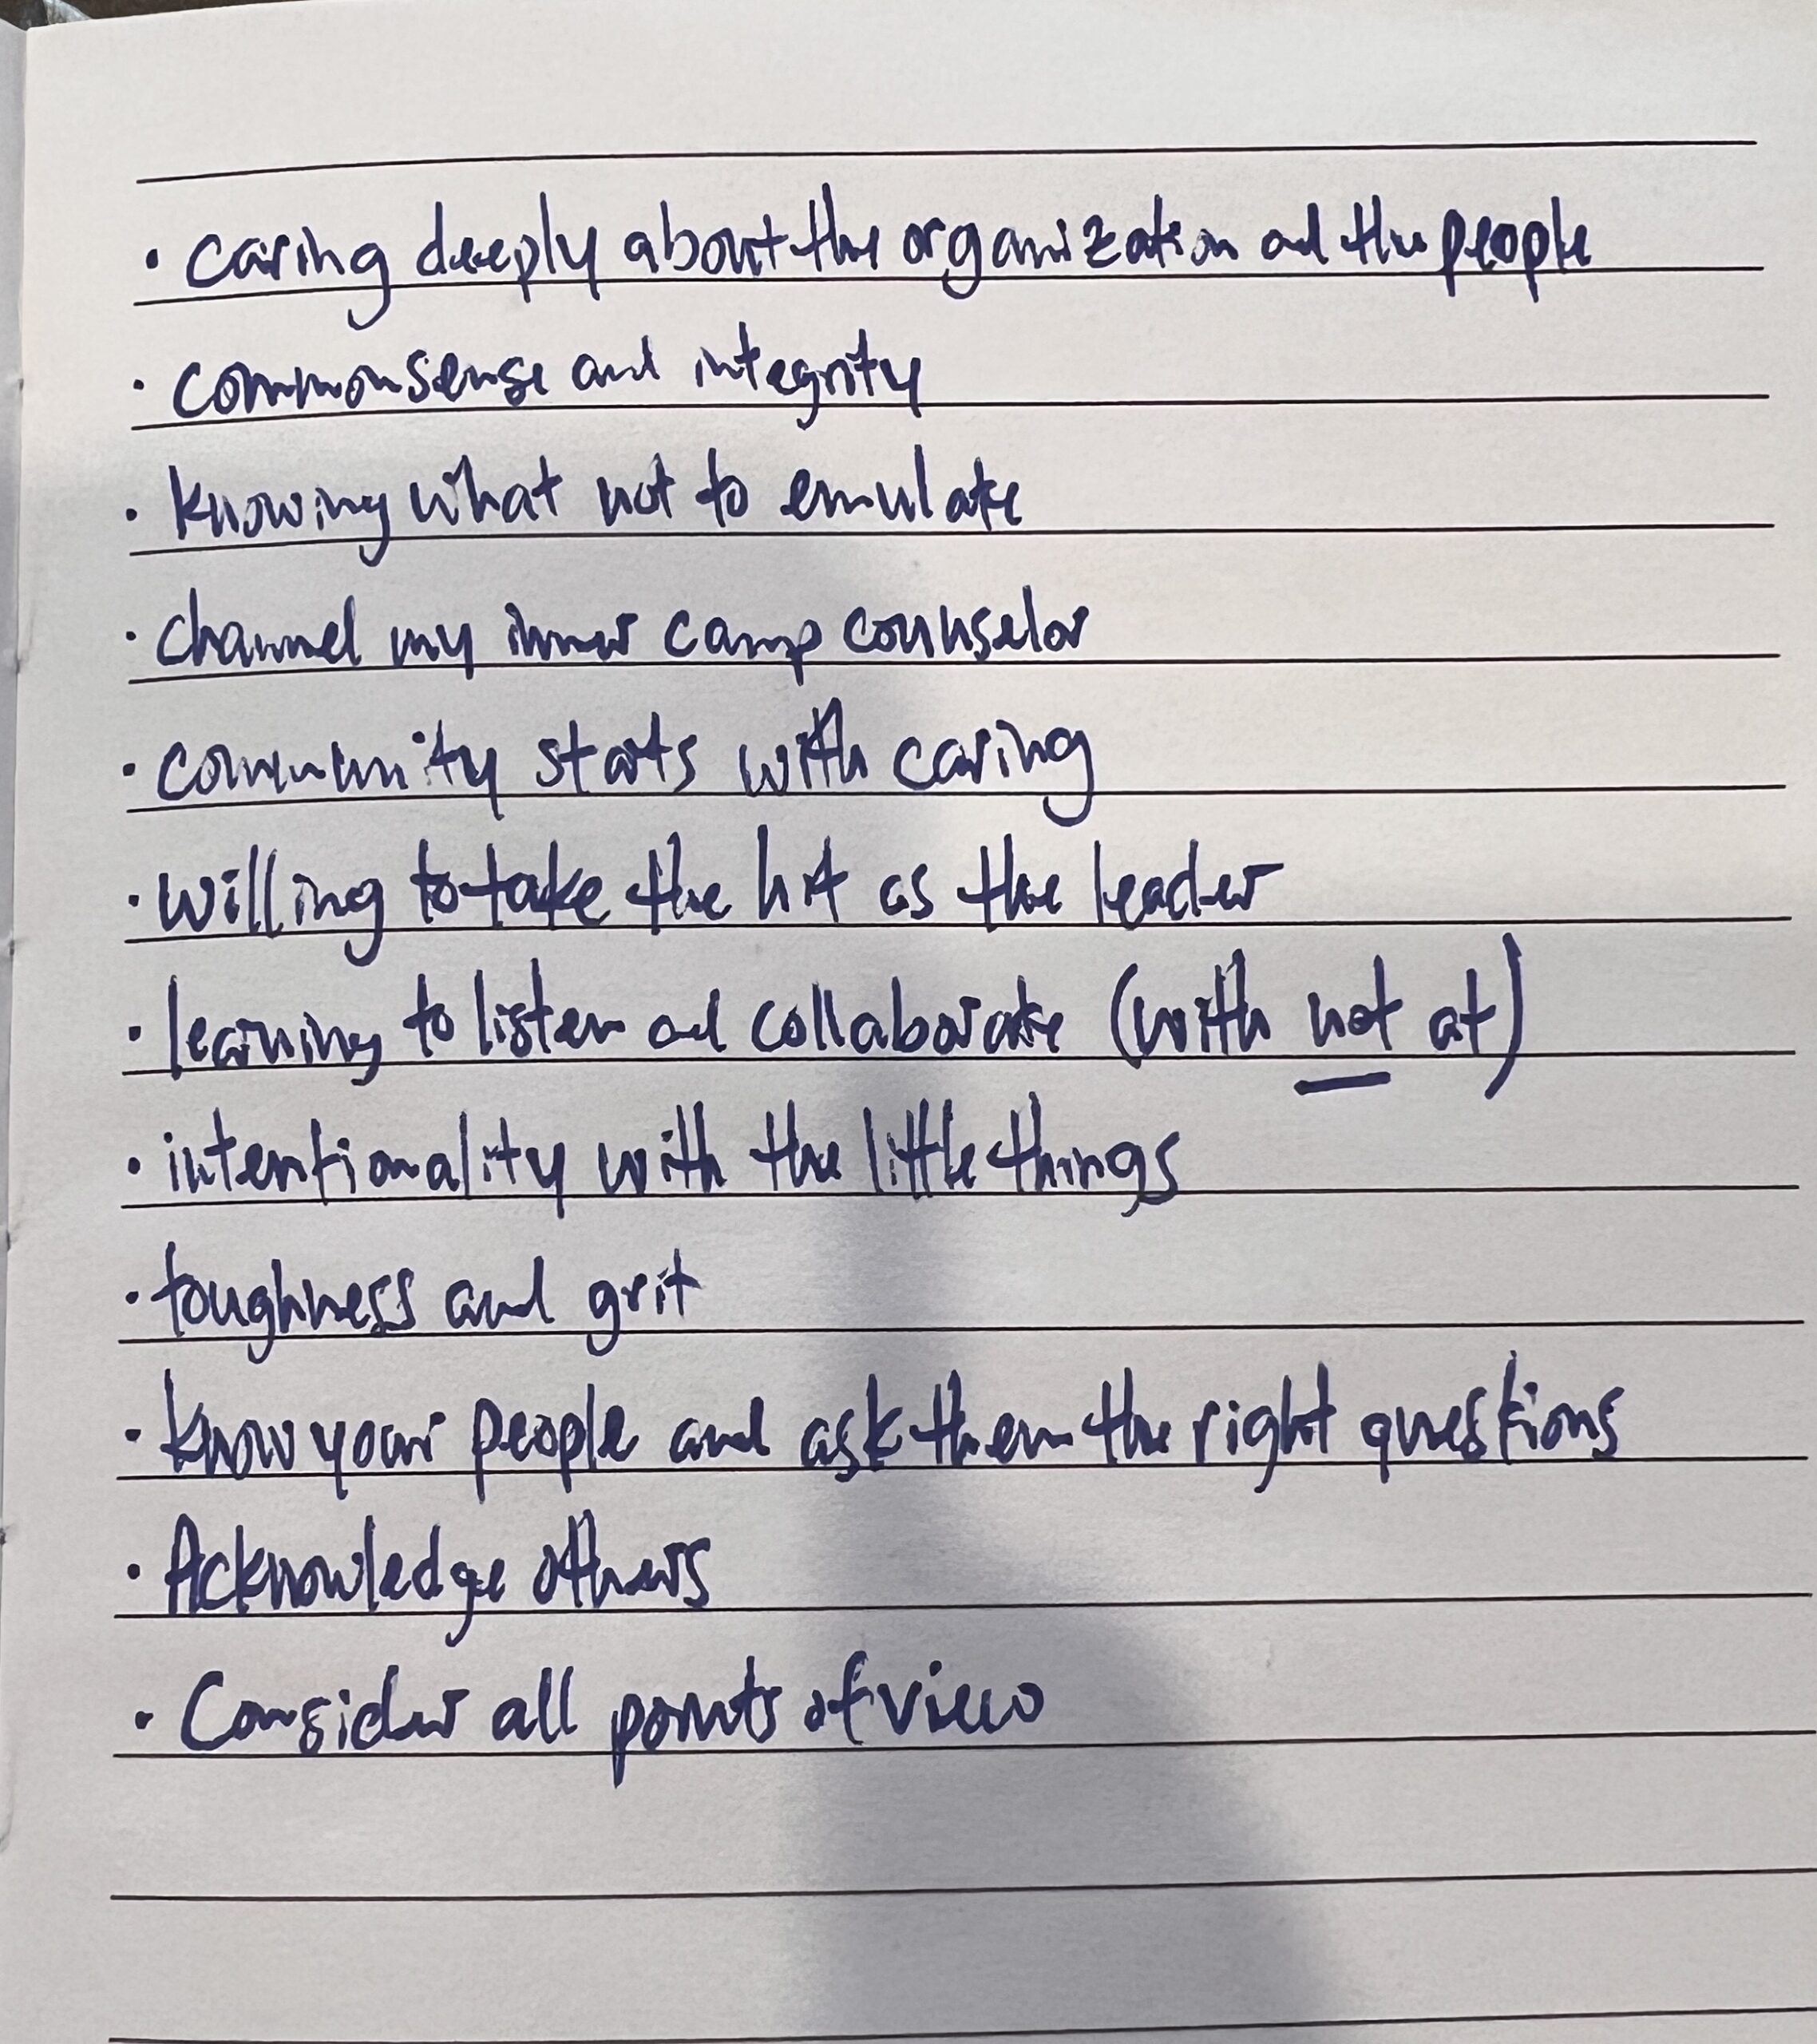 · caring deeply about the organization and the people
· commonsense and integrity
· knowing what not to emulate
· channel my inner camp counselor
· community starts with caring
· willing to take the hit as the leader
· learning to listen and collaborate (with not at)
· intentionality with the little things
· toughness and grit
· know your people and ask them the right questions
· Acknowledge others
· Consider all points of view